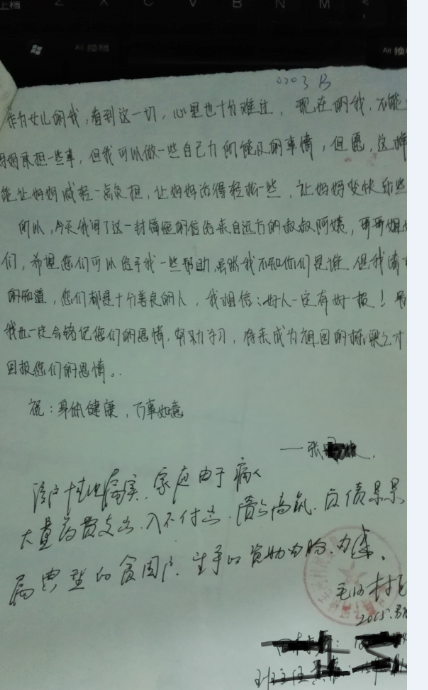 2203 B
作为女儿的我，看到这一切，心里也十分难过，现在的我，不能
妈妈承担一些事，但我可以做一些自己力所能及的事情，但愿，这样
能让妈妈减轻一点负担，让妈妈活得轻松一些，让妈妈变快乐些
所以，今天我写了这一封 信 给来自远方的叔叔阿姨，哥哥姐
们，希望您们可以给予我一些帮助，虽然我不知你们是谁，但我
的知道，您们都是十分善良的人，我相信：好人一定有好报！
我也一定会铭记您们的恩情，努力学习，将来成为祖国的栋梁之才
回报您们的恩情。
祝：身体健康，万事如意
——张
该户 情况属实，家庭由于病人
大量药费支出，入不付出，债台高筑，负债累累
属典型的贫困户，望予以资助为盼，为感。
村
2015.
班主任